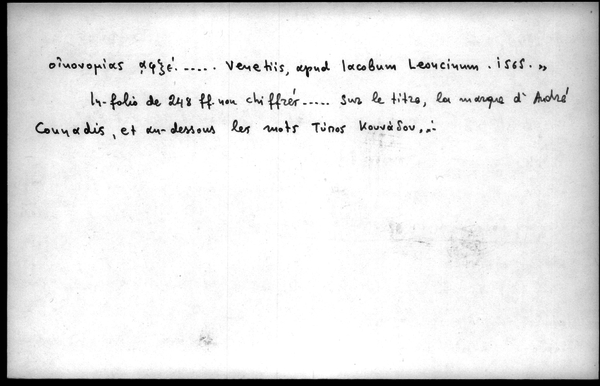 οἰκονομίας ͵αφξέ. ..... Venetiis, apud Iacobum Leoncinum. 1565.»
In-folio de 248 ff. non chiffrés ..... Sur le titre, la marque d'André
Counadis, et au-dessous les mots Τύπος Κουνάδου,.·.